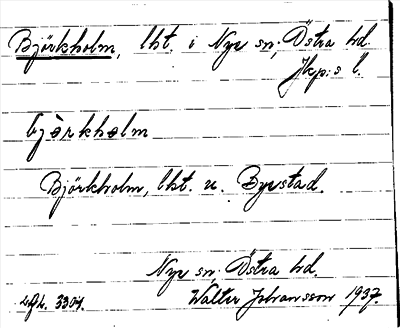 Björkholm, lht. i Nye sn, Östra hd.
Jkp:s l.
bjö̀rkhòlm
Björkholm, lht. u. Byestad.
Nye sn, Östra hd.
Walter Johansson 1937.